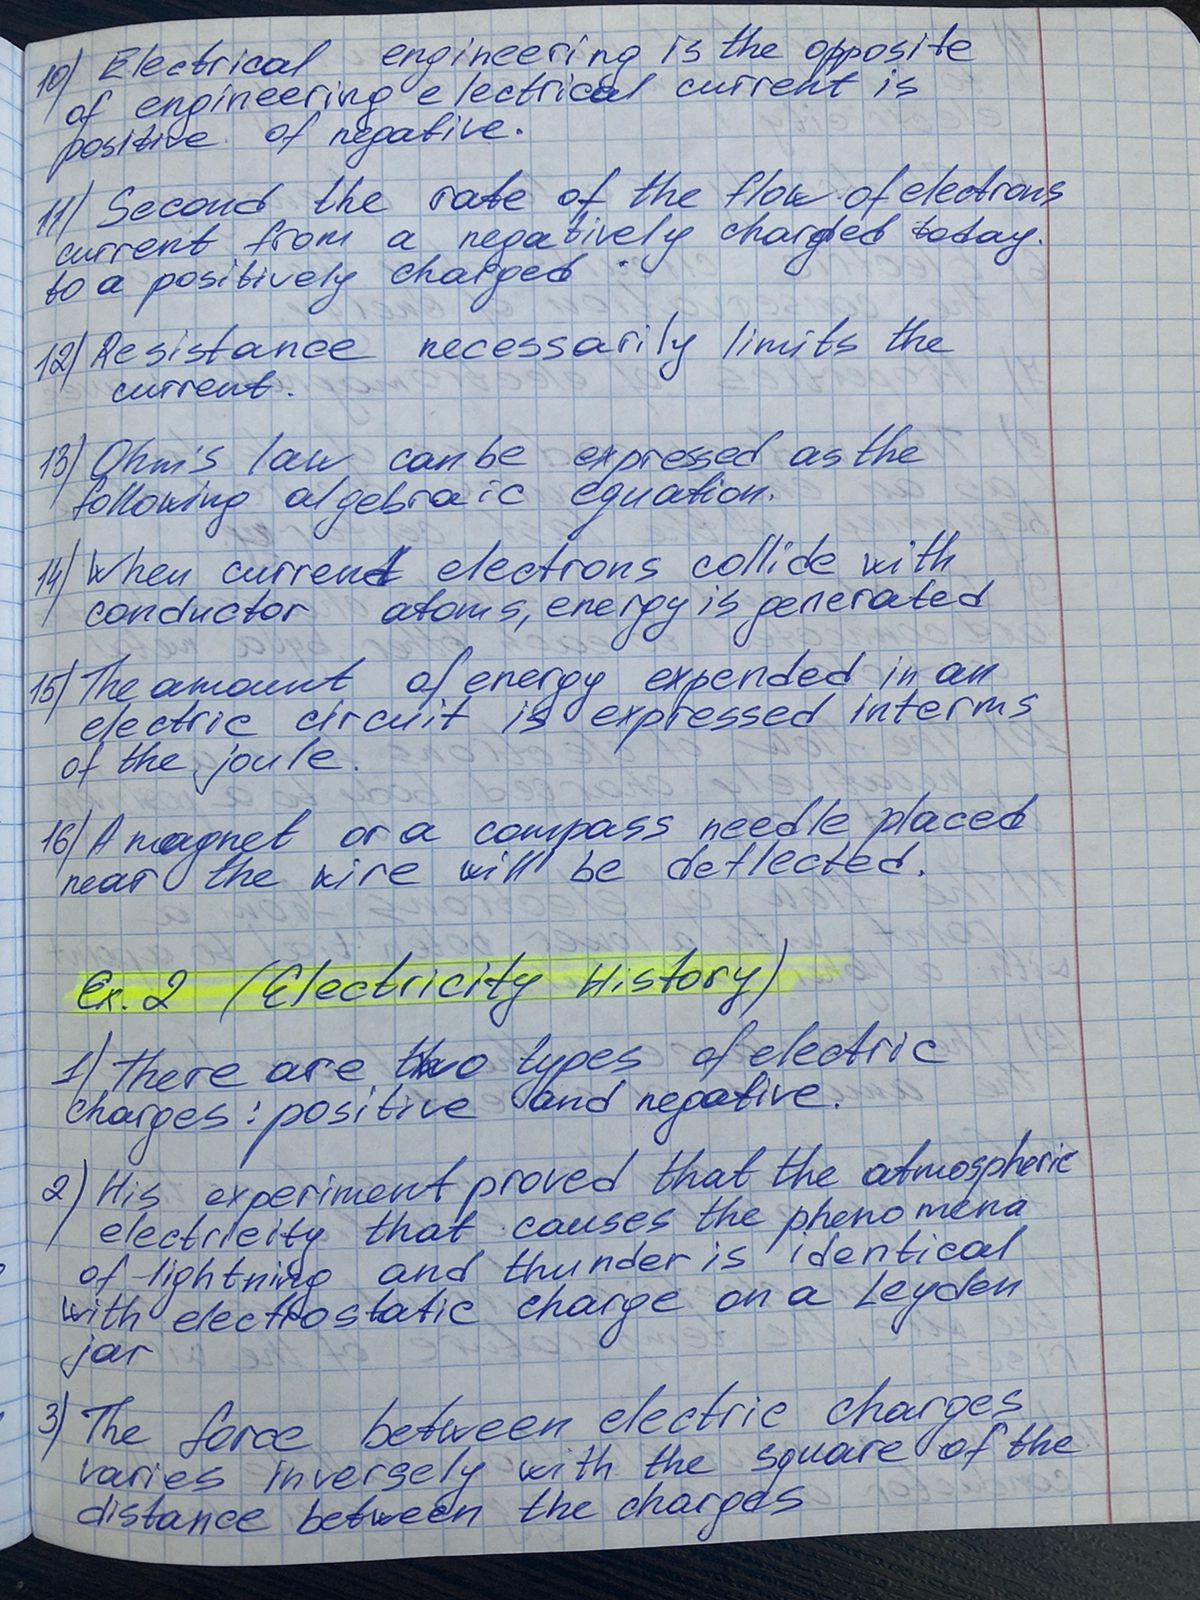 10) Electrical engineering is the opposite
of engineering electrical current is
positive of negative.
11) Second the rate of the flow of electrons
current from a negatively charged today.
to a positively charged
12) Resistance necessarily limits the
current.
13) Ohm's law can be expressed as the
following algebraic equation.
14) When current electrons collide with
conductor atoms, energy is generated
15) The amount of energy expended in an
electric circuit is expressed in terms
of the joule.
16) A magnet or a compass needle placed
near the wire will be deflected.
Ex. 2 (Electricity History)
1) There are two types of electric
charges: positive and negative.
2) His experiment proved that the atmospheric
electricity that causes the phenomena
of lightning and thunder is identical
with electrostatic charge on a Leyden
jar
3) The force between electric charges
varies inversely with the square of the
distance between the charges